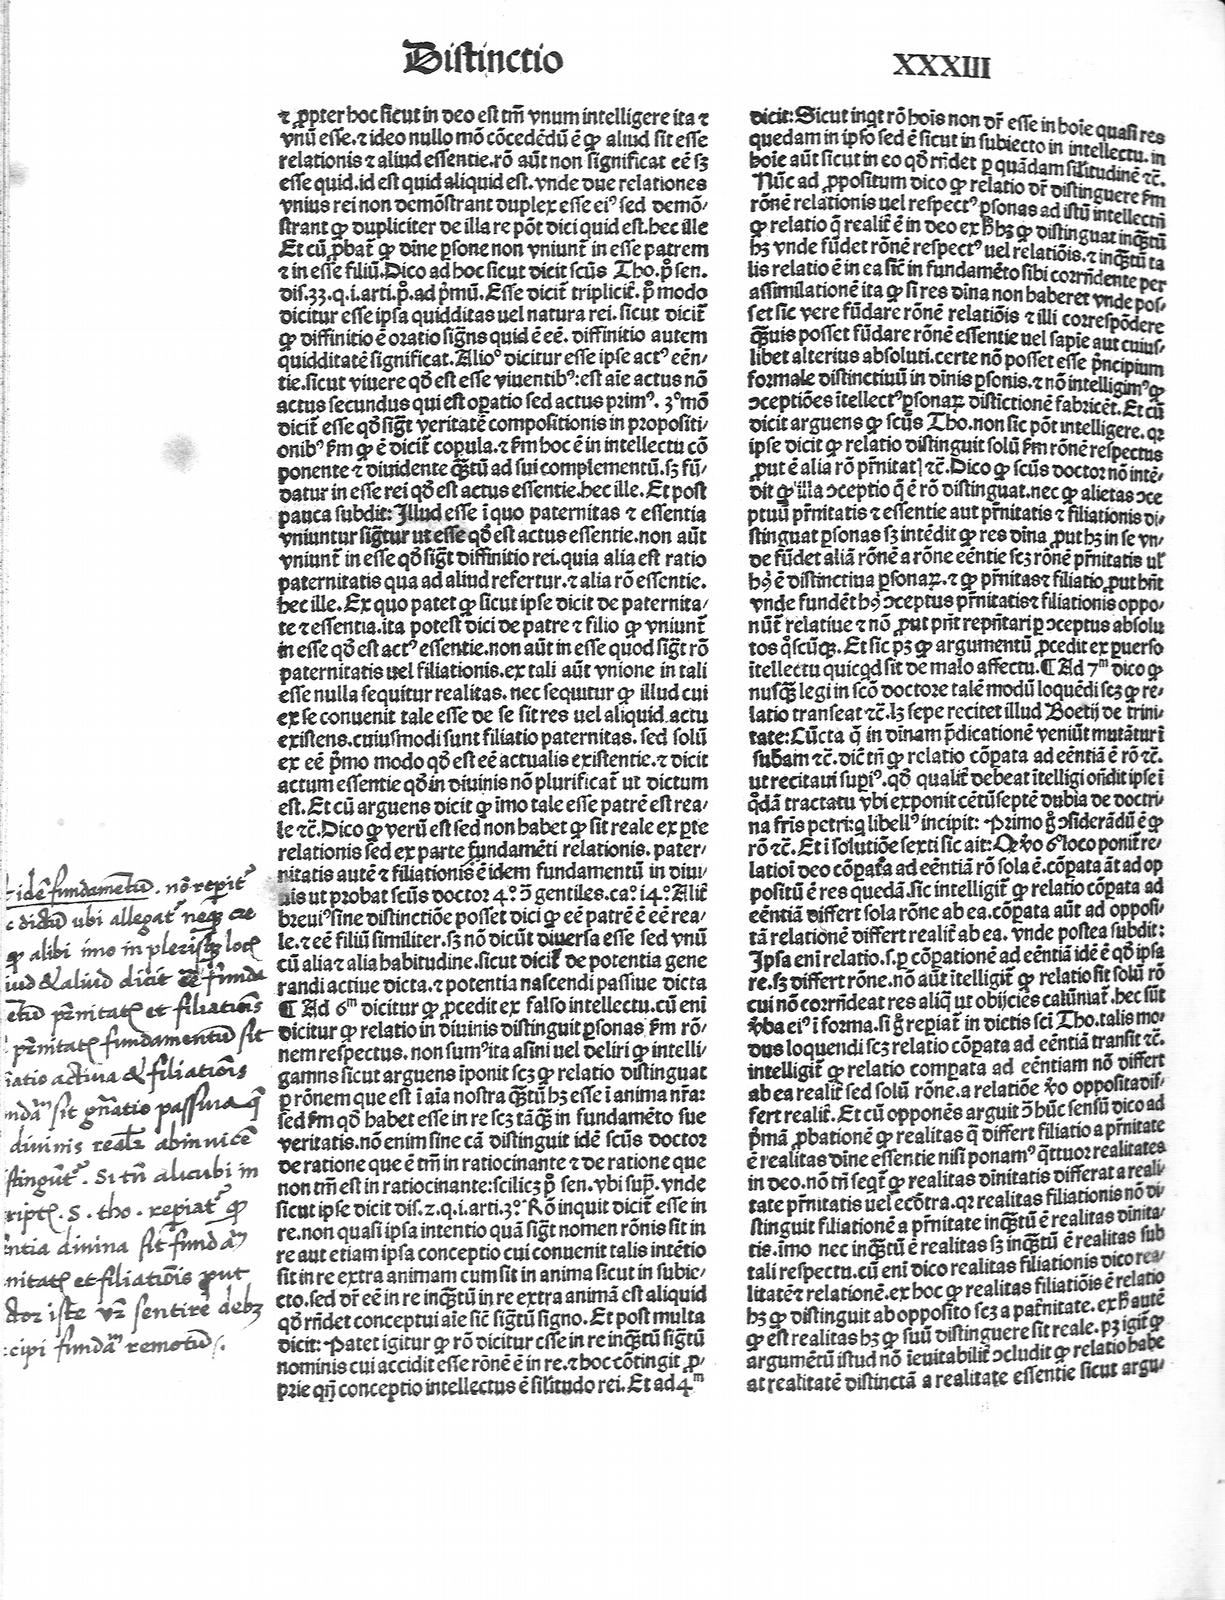 Distinctio
XXXIII
⁊ ꝓpter hoc sicut in deo est tm̄ vnum intelligere ita ⁊
vnū esse.⁊ ideo nullo mō cōcedēdū ē ꝙ aliud sit esse
relationis ⁊ aliud essentie.rō aūt non significat eē sꝫ
esse quid.id est quid aliquid est.vnde due relationes
vnius rei non demōstrant duplex esse eiꝰ sed demō/
strant ꝙ dupliciter de illa re pōt dici quid est.hec ille
Et cū ꝓbat̄ ꝙ dīne ꝑsone non vniunt̄ in esse patrem
⁊ in esse filiū.Dico ad hoc sicut dicit scūs Tho.pͦ sen.
dis.33.q.i.arti.pͦ.ad pͥmū.Esse dicit̄ triplicit̄.pͦ modo
dicitur esse ipsa quidditas uel natura rei.sicut dicit̄
ꝙ diffinitio ē oratio sigñs quid ē eē.diffinitio autem
quidditatē significat.Alioͦ dicitur esse ipse actꝰ eēn/
tie.sicut viuere qd̄ est esse viuentibꝰ:est aīe actus nō
actus secundus qui est oꝑatio sed actus primꝰ.3ͦ mō
dicit̄ esse qd̄ sigt̄ veritatē compositionis in propositi/
onibꝰ ẜm ꝙ ē dicit̄ copula.⁊ ẜm hoc ē in intellectu cō
ponente ⁊ diuidente q̄ꝫtū ad sui complementū.sꝫ fū/
datur in esse rei qd̄ est actus essentie.hec ille.Et post
pauca subdit:Illud esse ī quo paternitas ⁊ essentia
vniuntur sigt̄ur ut esse qd̄ est actus essentie.non aūt
vniunt̄ in esse qd̄ sigt̄ diffinitio rei.quia alia est ratio
paternitatis qua ad aliud refertur.⁊ alia rō essentie.
hec ille.Ex quo patet ꝙ sicut ipse dicit de paternita/
te ⁊ essentia.ita potest dici de patre ⁊ filio ꝙ vniunt̄
in esse qd̄ est actꝰ essentie.non aūt in esse quod sigt̄ rō
paternitatis uel filiationis.ex tali aūt vnione in tali
esse nulla sequitur realitas.nec sequitur ꝙ illud cui
ex se conuenit tale esse de se sit res uel aliquid actu
existens.cuiusmodi sunt filiatio paternitas.sed solū
ex eē pͥmo modo qd̄ est eē actualis existentie.⁊ dicit
actum essentie qd̄ in diuinis nō plurificat̄ ut dictum
est.Et cū arguens dicit ꝙ īmo tale esse patrē est rea/
le ⁊c̄.Dico ꝙ verū est sed non habet ꝙ sit reale ex ꝑte
relationis sed ex parte fundamēti relationis.pater/
nitatis autē ⁊ filiationis ē idem fundamentū in diui/
nis ut probat scūs doctor 4ͦ.ↄ̄ gentiles.caͦ.14ͦ.Alit̄
breuiꝰ sine distinctiōe posset dici ꝙ eē patrē ē eē rea/
le.⁊ eē filiū similiter.sꝫ nō dicūt diuersa esse sed vnū
cū alia ⁊ alia habitudine.sicut dicit̄ de potentia gene
randi actiue dicta.⁊ potentia nascendi passiue dicta
¶ Ad 6ᵐ dicitur ꝙ ꝓcedit ex falso intellectu.cū eni
dicitur ꝙ relatio in diuinis distinguit ꝑsonas ẜm rō/
nem respectus.non sumꝰ ita asini uel deliri ꝙ intelli/
gamus sicut arguens īponit scꝫ ꝙ relatio distinguat
ꝑ rōnem que est ī aīa nostra q̄ꝫtū hꝫ esse ī anima nr̄a:
sed ẜm qd̄ habet esse in re scꝫ tāq̄ꝫ in fundamēto sue
veritatis.nō enim sine cā distinguit idē scūs doctor
de ratione que ē tm̄ in ratiocinante ⁊ de ratione que
non tm̄ est in ratiocinante:scilicꝫ pͦ sen.vbi supͣ.vnde
sicut ipse dicit dis.2.q.i.arti.3ͦ.Rō inquit dicit̄ esse in
re.non quasi ipsa intentio quā sigt̄ nomen rōnis sit in
re aut etiam ipsa conceptio cui conuenit talis intētio
sit in re extra animam cum sit in anima sicut in subie/
cto.sed dr̄ eē in re inq̄ꝫtū in re extra animā est aliquid
qd̄ rñdet conceptui aīe sic̄ sigt̄ū signo.Et post multa
dicit:Patet igitur ꝙ rō dicitur esse in re inq̄ꝫtū sigt̄ū
nominis cui accidit esse rōnē ē in re.⁊ hoc cōtingit ꝓ/
prie qn̄ conceptio intellectus ē silitudo rei.Et ad 4ᵐ
dicit:Sicut inqt rō hoīs non dr̄ esse in hoīe quasi res
quedam in ipso sed ē sicut in subiecto in intellectu.in
hoīe aūt sicut in eo qd̄ rñdet ꝑ quādam silitudinē ⁊c̄.
Nūc ad ꝓpositum dico ꝙ relatio dr̄ distinguere ẜm
rōnē relationis uel respectꝰ ꝑsonas ad istū intellectū
ꝙ relatio q̄ realit̄ ē in deo ex hͦ hꝫ ꝙ distinguat inq̄ꝫtū
hꝫ vnde fūdet rōnē respectꝰ uel relatiōis.⁊ inq̄ꝫtū ta
lis relatio ē in ea sic̄ in fundamēto sibi corrñdente per
assimilationē ita ꝙ si res diīna non haberet vnde pos/
set sic vere fūdare rōnē relatiōis ⁊ illi correspōdere
q̄ꝫuis posset fūdare rōnē essentie uel sapīe aut cuius/
libet alterius absoluti.certe nō posset esse pͥncipium
formale distinctiuū in diīnis ꝑsonis.⁊ nō intelligimꝰ ꝙ
ↄceptiōes ītellectꝰ ꝑsonaꝝ distictionē fabricēt.Et cū
dicit arguens ꝙ scūs Tho.non sic pōt intelligere.qꝛ
ipse dicit ꝙ relatio distinguit solū ẜm rōnē respectus
ꝓut ē alia rō pr̄nitat̄ ⁊c̄.Dico ꝙ scūs doctor nō intē/
dit ꝙ illa ↄceptio q̄ ē rō distinguat.nec ꝙ alietas ↄce
ptuū pr̄nitatis ⁊ essentie aut pr̄nitatis ⁊ filiationis di/
stinguat ꝑsonas sꝫ intēdit ꝙ res diīna ꝓut hꝫ in se vn/
de fūdet aliā rōnē a rōne eēntie scꝫ rōnē pr̄nitatis ul̄
hꝰ ē distinctiua ꝑsonaꝝ.⁊ ꝙ pr̄nitas ⁊ filiatio ꝓut hn̄t
vnde fundēt hꝰ ↄceptus pr̄nitatis ⁊ filiationis oppo/
nūt̄ relatiue ⁊ nō ꝓut pn̄t repñtari ꝑ ↄceptus absolu
tos qͦscūqꝫ.Et sic pꝫ ꝙ argumentū ꝓcedit ex ꝑuerso
ītellectu quicqd sit de malo affectu.¶ Ad 7ᵐ dico ꝙ
nusq̄ꝫ legi in scō doctore talē modū loquēdi scꝫ ꝙ re/
latio transeat ⁊c̄.lꝫ sepe recitet illud Boetij de trini/
tate:Cūcta q̄ in diīnam pͥdicationē veniūt mutātur ī
subam ⁊c̄.dic̄t tn̄ ꝙ relatio cōpata ad eēntiā ē rō ⁊c̄.
ut recitaui supiꝰ.qd̄ qualit̄ debeat ītelligi oñdit ipse ī
qͦdā tractatu vbi exponit cētūseptē dubia de doctri/
na fris petri:q libellꝰ incipit: Primo gͦ ↄsiderādū ē ꝙ
rō ⁊c̄.Et ī solutiōe sexti sic ait:Qͩ ỽo 6ͦ loco ponit̄ re/
latioī deo cōpata ad eēntiā rō sola ē.cōpata āt ad op
positū ē res quedā.sic intelligit̄ ꝙ relatio cōpata ad
eēntiā differt sola rōne ab ea.cōpata aūt ad opposi/
tā relationē differt realit̄ ab ea.vnde postea subdit:
Ipsa eni relatio.s.ꝑ cōpationē ad eēntiā idē ē qd̄ ipsa
re.sꝫ differt rōne.nō aūt ītelligit̄ ꝙ relatio sit solū rō
cui nō corrñdeat res aliq̄ ut obijciēs calūniat̄.hec sūt
ỽba eiꝰ ī forma.si gͦ repiat̄ in dictis sci Tho.talis mo/
dus loquendi scꝫ relatio cōpata ad eēntiā transit ⁊c̄.
intelligit̄ ꝙ relatio compata ad eēntiam nō differt
ab ea realit̄ sed solū rōne.a relatiōe ỽo opposita dif/
fert realit̄.Et cū opponēs arguit ↄ̄ hūc sensū dico ad
pͥmā ꝓbationē ꝙ realitas q̄ differt filiatio a pr̄nitate
ē realitas diīne essentie nisi ponamꝰ q̄ttuor realitates
in deo.nō tn̄ seqt̄ ꝙ realitas diīnitatis differat a reali/
tate pr̄nitatis uel ecōtra.qꝛ realitas filiationis nō di/
stinguit filiationē a pr̄nitate inq̄ꝫtū ē realitas diīnita/
tis.īmo nec inq̄ꝫtū ē realitas sꝫ inq̄ꝫtū ē realitas sub
tali respectu.cū eni dico realitas filiationis dico rea/
litatē ⁊ relationē.ex hoc ꝙ realitas filiatiōis ē relatio
hꝫ ꝙ distinguit ab opposito scꝫ a pat̄nitate.ex hͦ autē
ꝙ est realitas hꝫ ꝙ suū distinguere sit reale.pꝫ igit̄ ꝙ
argumētū istud nō īeuitabilit̄ ↄcludit ꝙ relatio habe
at realitatē distinctā a realitate essentie sicut argu/
idē fundamētū. nō reꝑit̄
dictū ubi allegat̄ neqꝫ
ꝙ alibi imo in plerisqꝫ locꝭ
&aliud dicit eē funda
pr̄nitatꝭ et filiatiōis
pr̄nitatꝭ fundamentū sit
actiua & filiatiōis
sit gn̄atio passiua q̄
diuinis realr̄ abinuicē
Si tn̄ alicubi in
S. tho. reꝑiat̄ ꝙ
diuina sit fundāᵐ
et filiatiōis ꝓut
iste vr̄ sentire debꝫ
fundāᵐ remotū.